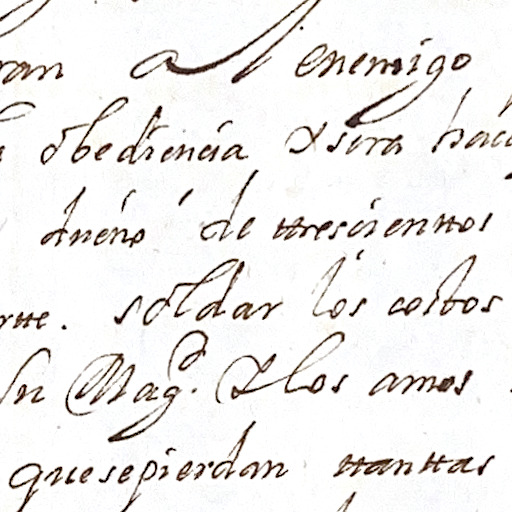 ran al enemigo
obediencia Y sera hac
dueño de ttrescienttos
rtte. soldar los costos
Su Magd. Y los amos
que se pierdan ttanttas